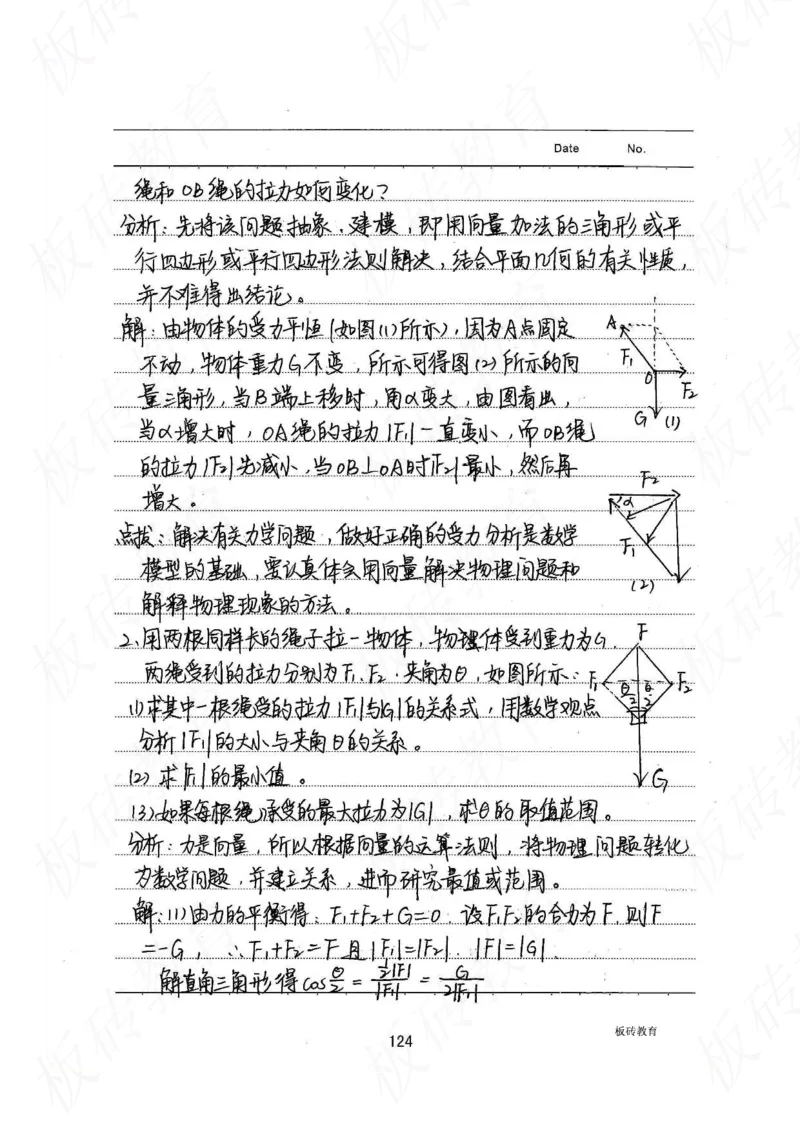 Date No.
绳和OB绳的拉力如何变化？
分析：先将该问题抽象、建模，即用向量加法的三角形或平
行四边形或平行四边形法则解决，结合平面几何的有关性质，
并不难得出结论。
解：由物体的受力平恒(如图(1)所示)，因为A点固定
不动，物体重力G不变，所示可得图(2)所示的向
量三角形，当B端上移时，角α变大，由图看出，
当α增大时，OA绳的拉力|F₁|一直变小，而OB绳
的拉力|F₂|先减小，当OB⊥OA时|F₂|最小，然后再
增大。
A
F₁
O
F₂
G (1)
F₂
α
F₁
(2)
点拔：解决有关力学问题，做好正确的受力分析是数学
模型的基础，要认真体会用向量解决物理问题和
解释物理现象的方法。
2、用两根同样长的绳子拉一物体，物理体受到重力为G.
两绳受到的拉力分别为F₁、F₂.夹角为θ，如图所示：
(1)求其中一根绳受的拉力|F₁|与|G|的关系式，用数学观点
分析|F₁|的大小与夹角θ的关系。
(2)求|F₁|的最小值。
(3)如果每根绳承受的最大拉力为|G|，求θ的取值范围。
F
F₁
F₂
θ/2 θ/2
G
分析：力是向量，所以根据向量的运算法则，将物理问题转化
为数学问题，并建立关系，进而研究最值或范围。
解：(1)由力的平衡得：F₁+F₂+G=0.设F₁F₂的合力为F.则F
=-G，∴F₁+F₂=F且|F₁|=|F₂|.|F|=|G|.
解直角三角形得cos θ/2 = ½|F|/|F₁| = G/2|F₁|
124
板砖教育